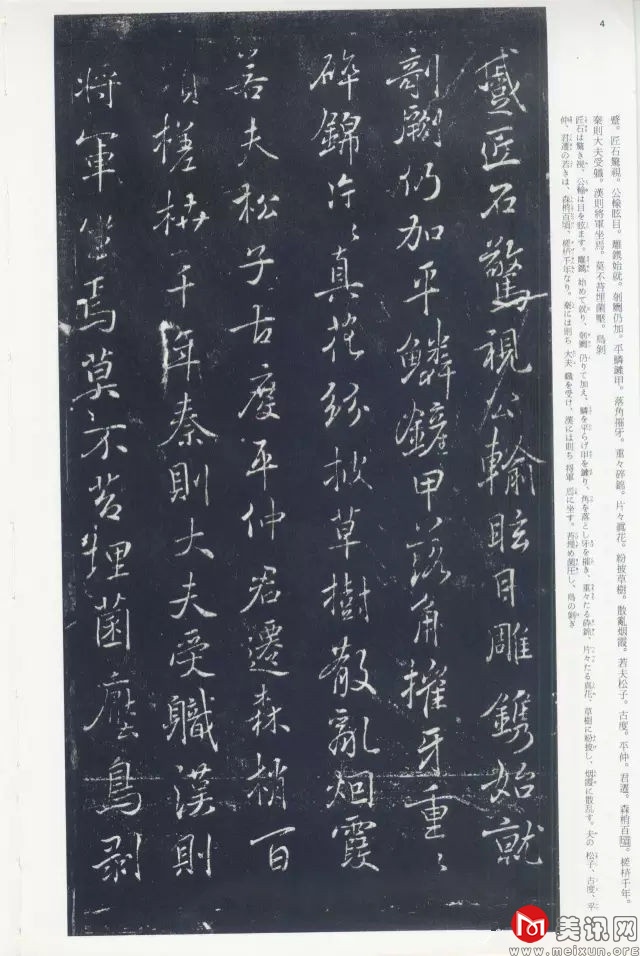 4
蹙。匠石驚視。公輸眩目。雕鐫始就。剞劂仍加。平鱗鏟甲。落角摧牙。重々碎錦。片々眞花。紛披草樹。散亂烟霞。若夫松子。古度。平仲。君遷。森梢百頃。槎枿千年。
秦則大夫受職。漢則將軍坐焉。莫不苔埋菌壓。鳥剝
匠石は驚き視、公輸は目を眩ます。雕鐫 始めて就り、剞劂 仍りて加え、鱗を平らげ甲を鏟り、角を落とし牙を摧き、重々たる碎錦、片々たる眞花、草樹に紛披し、烟霞に散乱す。夫の 松子、古度、平
仲、君遷の若きは、森梢百頃、槎枿千年なり。秦には則ち 大夫 職を受け、漢には則ち 将軍 焉に坐す。苔埋め菌圧し、鳥の剝ぎ
蹙匠石驚視公輸眩目雕鐫始就
剞劂仍加平鱗鏟甲落角摧牙重々
碎錦片々真花紛披草樹散亂烟霞
若夫松子古度平仲君遷森梢百
頃槎枿千年秦則大夫受職漢則
将軍坐焉莫不苔埋菌壓鳥剝
美讯网
www.meixun.org